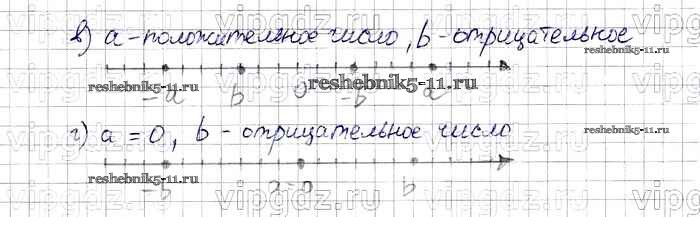 в) a - положительное число, b - отрицательное
-a b 0 -b a
г) a = 0, b - отрицательное число
-b a=0 b
reshebnik5-11.ru
reshebnik5-11.ru
reshebnik5-11.ru
reshebnik5-11.ru
reshebnik5-11.ru
vipgdz.ru